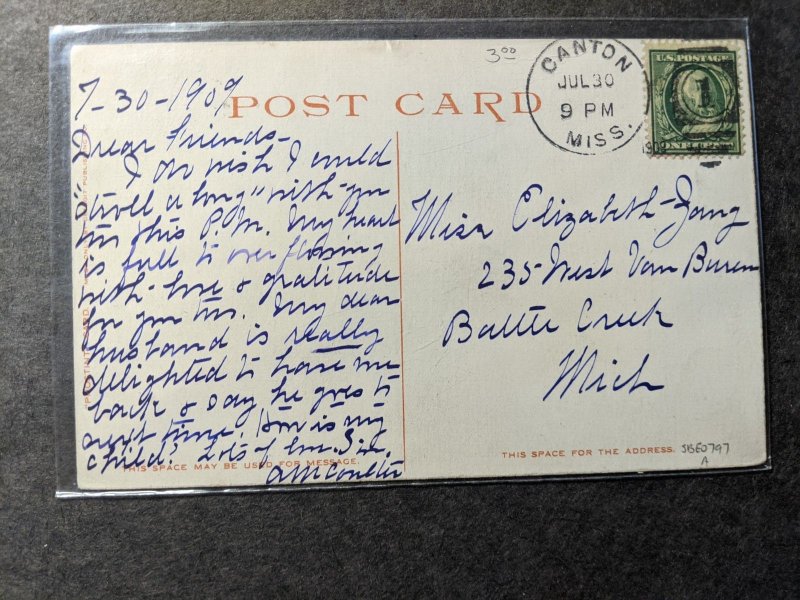 7-30-1909
POST CARD
3⁰⁰
CANTON
JUL 30
9 PM
MISS.
1909
U.S. POSTAGE
1
Dear Friends-
I do wish I could
"stroll along" with you
this P.M. My heart
is full to over flowing
with love & gratitude
for you My dear
husband is really
delighted to have me
back & say he goes to
next time. How is my
child? Lots of love.
Miss Elizabeth
235 West Van Buren
Battle Creek
Mich
THIS SPACE MAY BE USED FOR MESSAGE.
THIS SPACE FOR THE ADDRESS.
JSBE0797
A